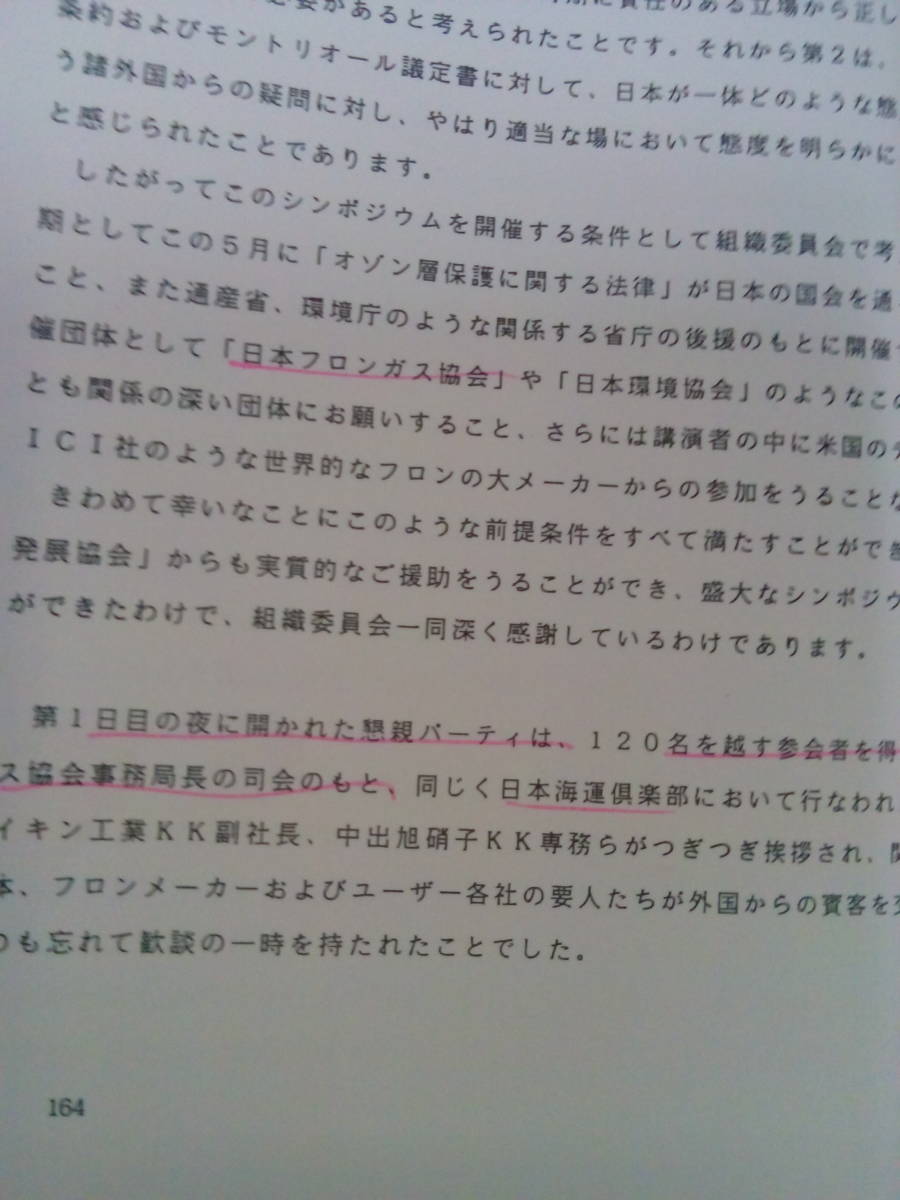 必要があると考えられたことです。それから第2は、
条約およびモントリオール議定書に対して、日本が一体どのような態
う諸外国からの疑問に対し、やはり適当な場において態度を明らかに
と感じられたことであります。
したがってこのシンポジウムを開催する条件として組織委員会で考
期としてこの5月に「オゾン層保護に関する法律」が日本の国会を通
こと、また通産省、環境庁のような関係する省庁の後援のもとに開催
催団体として「日本フロンガス協会」や「日本環境協会」のようなこの
とも関係の深い団体にお願いすること、さらには講演者の中に米国のデ
ICI社のような世界的なフロンの大メーカーからの参加をうることな
きわめて幸いなことにこのような前提条件をすべて満たすことができ
発展協会」からも実質的なご援助をうることができ、盛大なシンポジウ
ができたわけで、組織委員会一同深く感謝しているわけであります。
第1日目の夜に開かれた懇親パーティは、120名を越す参会者を得
ス協会事務局長の司会のもと、同じく日本海運倶楽部において行なわれ
イキン工業KK副社長、中出旭硝子KK専務らがつぎつぎ挨拶され、関
本、フロンメーカーおよびユーザー各社の要人たちが外国からの賓客を交
のも忘れて歓談の一時を持たれたことでした。
164